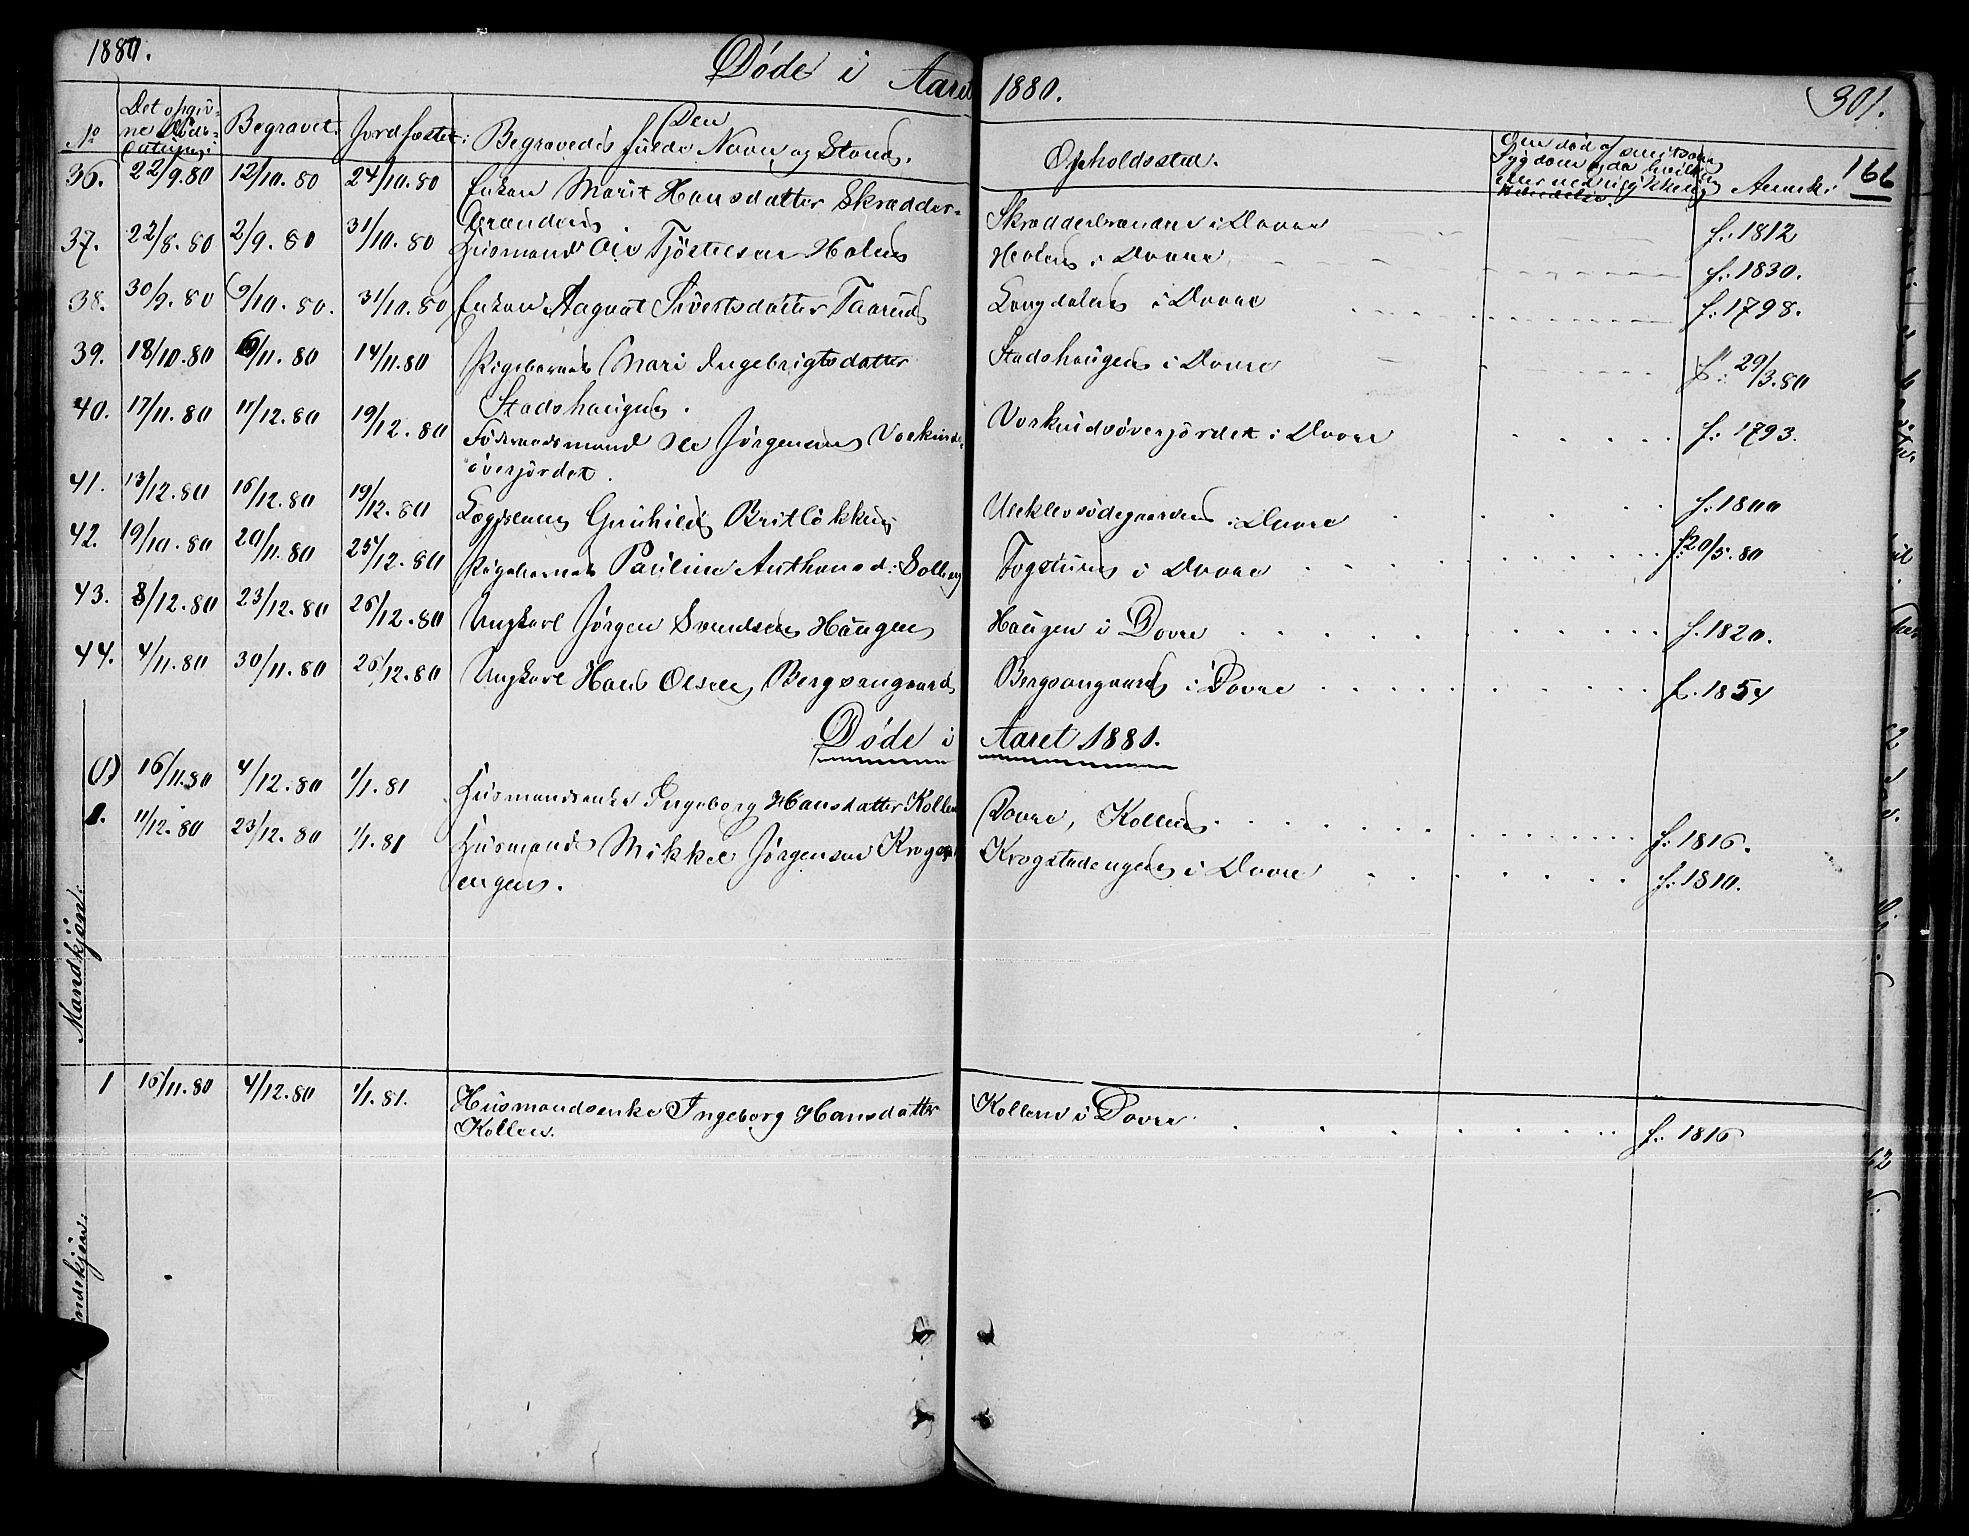 1880.
Døde i Aaret 1880.
301.
166
No Det opgivne Døds- Begravet. Jordfæstet: Den Begravedes fulde Navn og Stand. Opholdssted. Anmrk:
36. 22/9.80 12/10.80 24/10.80 Enken Marit Hansdatter Skrædder- Skrædderbranden i Dovre f: 1812
branden
37. 22/8.80 2/9.80 31/10.80 Husmand Ole Tjøstelsen Holen Holen i Dovre f: 1830.
38. 30/9.80 9/10.80. 31/10.80 Enken Aagaat Sivertsdatter Taarud Langdalen i Dovre f: 1798.
39. 18/10.80 6/11.80 14/11.80 Pigebarnet Mari Ingebrigtsdatter Stadshaugen i Dovre f: 29/3.80
Stadshaugen.
40. 17/11.80 11/12.80 19/12.80 Føderaadsmand Ole Jørgensen Vorkinds- Vorkindsøverjordet i Dovre f: 1793.
øverjordet.
41. 13/12.80 16/12.80 19/12.80 Lægdslem Gunhild Britløkken i Dovre f. 1800
42. 19/10.80 20/11.80 25/12.80 Pigebarnet Pauline Anthonsd: Solberg Togstuen i Dovre f: 20/5.80
43. 8/12.80 23/12.80 26/12.80 Ungkarl Jørgen Svendsen Haugen Haugen i Dovre f. 1820.
44. 4/11.80 30/11.80 26/12.80 Ungkarl Hans Olsen Bergsangaard Bergsangaard i Dovre f. 1854
Døde i Aaret 1881.
(1) 16/11.80 4/12.80 1/1.81 Husmandsenke Ingeborg Hansdatter Kollen Dovre, Kollen f: 1816.
1. 11/12.80 23/12.80 1/1.81 Husmand Mikkel Jørgensen Krogstad- Krogstadengen i Dovre f: 1810.
engen.
Mandkjøn.
1 16/11.80 4/12.80 1/1.81. Husmandsenke Ingeborg Hansdatter Kollen i Dovre f: 1816
Kollen.